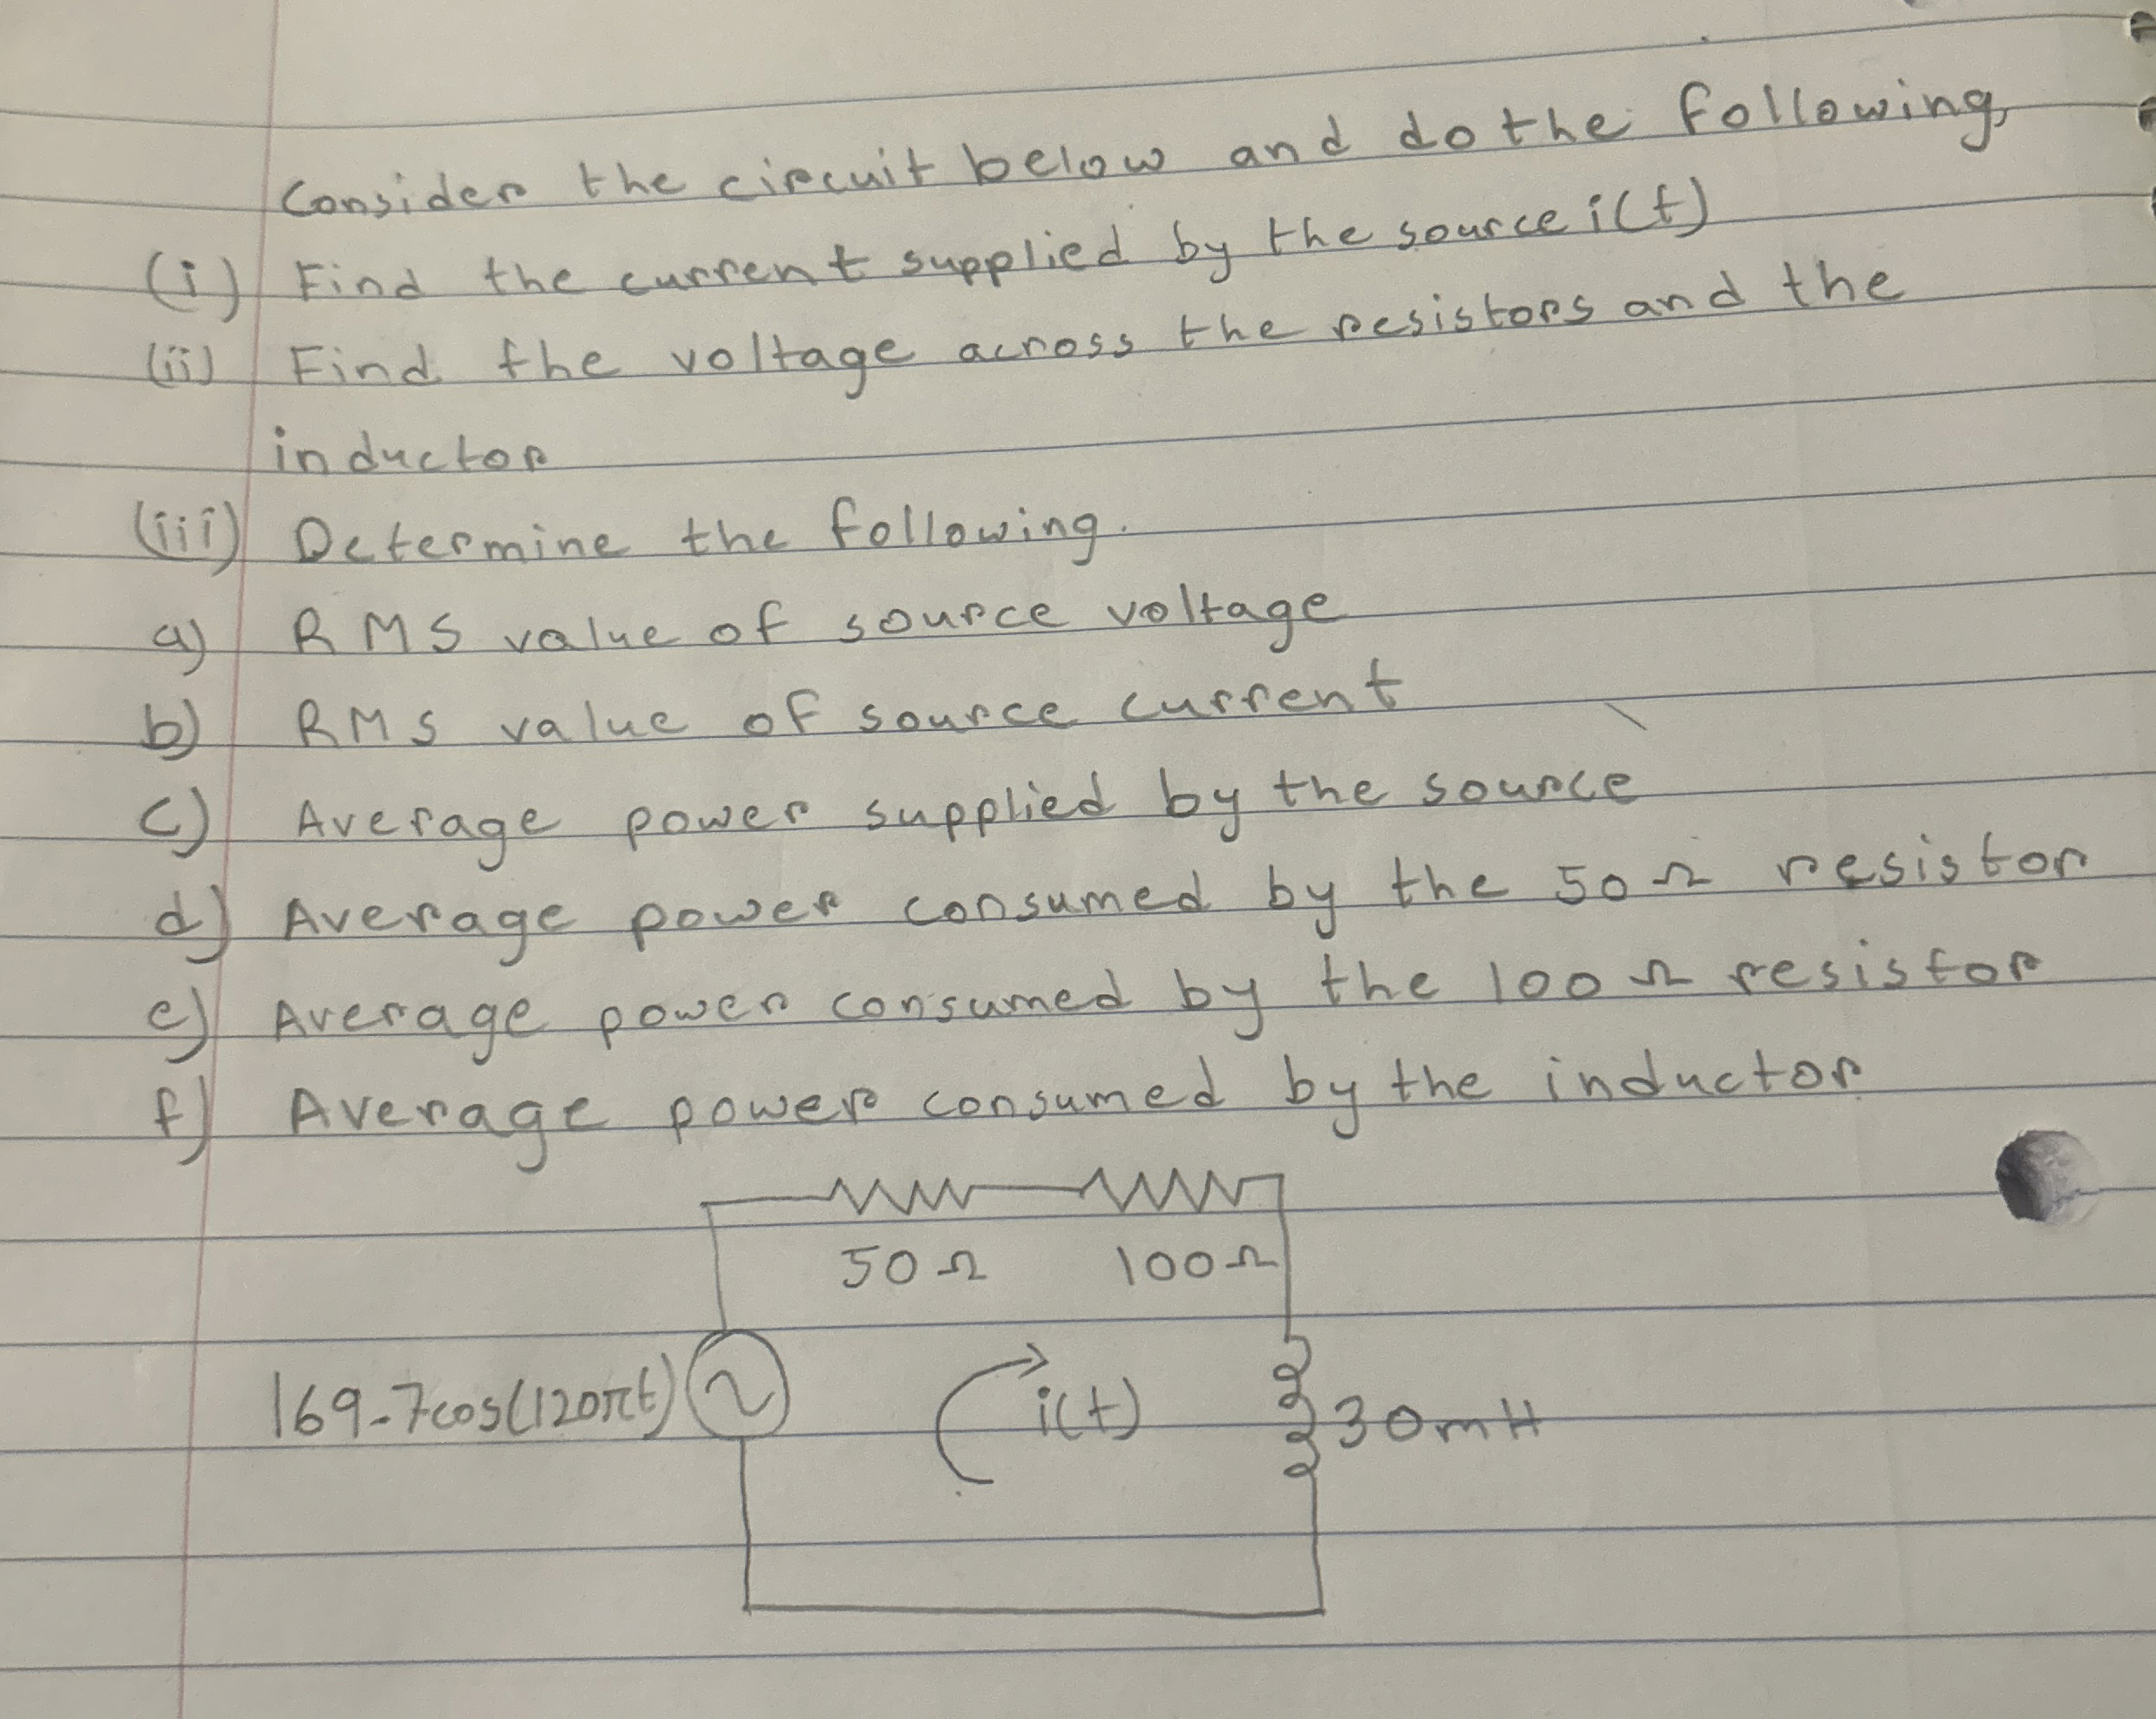 Consider the circuit below and do the following,
(i) Find the current supplied by the source i(t)
(ii) Find the voltage across the resistors and the
inductor
(iii) Determine the following.
a) RMS value of source voltage
b) RMS value of source current
c) Average power supplied by the source
d) Average power consumed by the 50Ω resistor
e) Average power consumed by the 100Ω resistor
f) Average power consumed by the inductor
50Ω 100Ω
169.7cos(120πt) i(t) 30mH